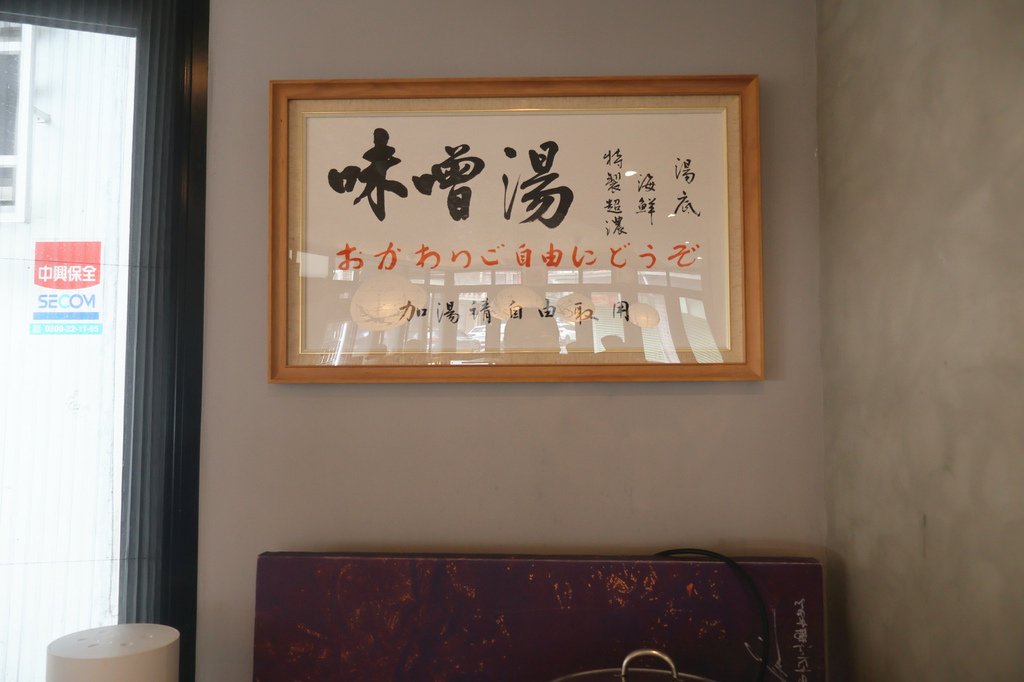 味噌湯
湯底
海鮮
特製超濃
おかわりご自由にどうぞ
加湯請自由取用
中興保全
SECOM
0800-22-11-95